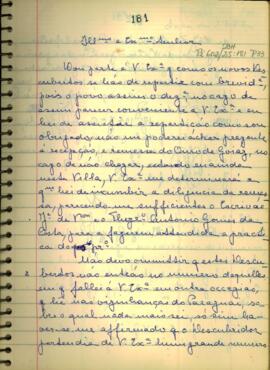 181
Ill.mo e Ex.mo Senhor
Dou parte a V. Ex.a q como os novos Des
cubertos se hão de repartir com brevid.e,
pois o povo assim o dez.a, no cazo de
assim parecer conveniente a V. Ex.a e eu
hei de assistir a repartição como sou
obrigado não me poderei achar prezente
á recepção, e remessa do Ouro de Goiaz, no
cazo de não chegar, estando eu ainda
nesta Villa, V. Ex.a me determinará a
q.m hei de incumbir a diligencia da remes-
sa, parecendo me sufficientes o Escrivão
M.el de e o Antonio Gomes da
Costa, para a fazerem attendida a pra
do
Não devo ommittir q estes Descu
bertos vão entrar no numero daquelles
em q fallei a V. Ex.a em outra occazião,
q he nas vizinhanças do Paraguai, so
bre o qual nada mais sei, só sim ha-
ver-se me affirmado q o Descubridor
pertendia de V. Ex.a hum grande numero